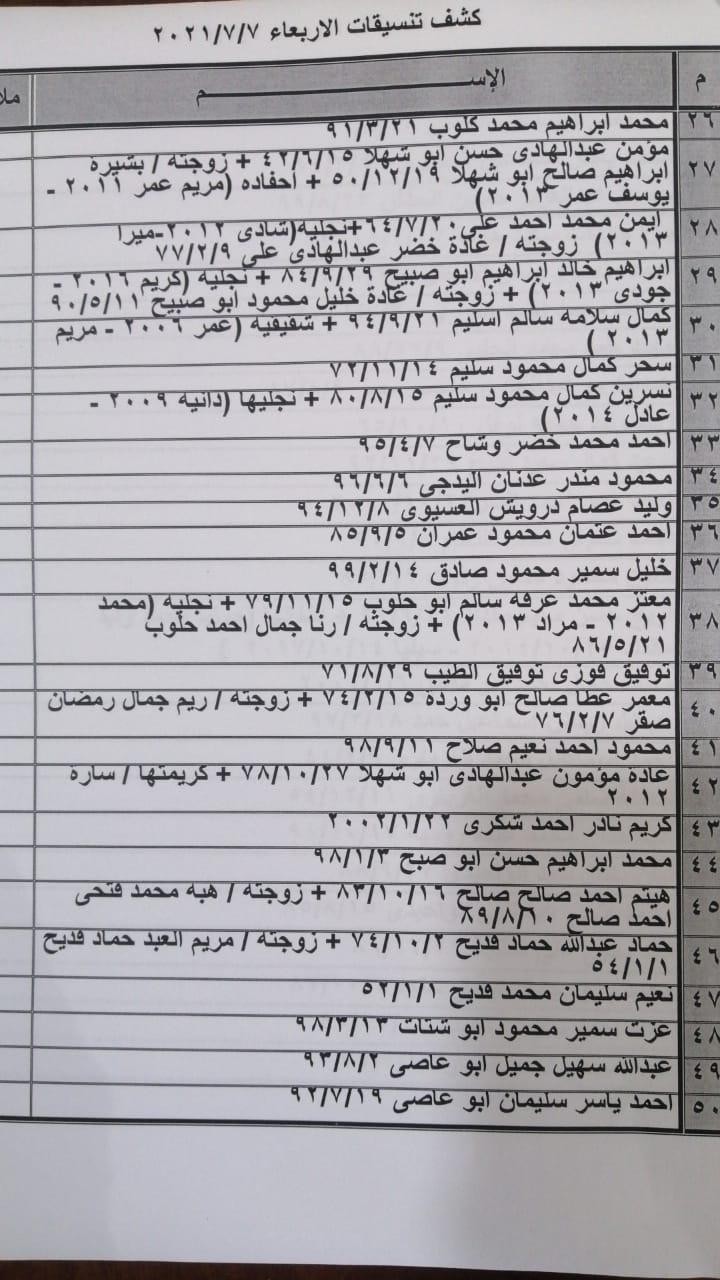 كشف تنسيقات الاربعاء ٢٠٢١/٧/٧
م الإســــــــم ملا
٢٦ محمد ابراهيم محمد كلوب ٩١/٣/٢١
٢٧ مؤمن عبدالهادى حسن ابو شهلا ٤٢/٦/١٥ + زوجته / بشيرة
ابراهيم صالح ابو شهلا ٥٠/١٢/١٩ + احفاده (مريم عمر ٢٠١١ -
يوسف عمر ٢٠١٣)
٢٨ ايمن محمد احمد على ٦٤/٧/٢٠+نجليه(شادى ٢٠١٢-ميرا
٢٠١٣) زوجته / غادة خضر عبدالهادى على ٧٧/٢/٩
٢٩ ابراهيم خالد ابراهيم ابو صبيح ٨٤/٩/٢٩ + نجليه (كريم ٢٠١٦ -
جودى ٢٠١٣) + زوجته / غادة خليل محمود ابو صبيح ٩٠/٥/١١
٣٠ كمال سلامه سالم اسليم ٩٤/٩/٢١ + شقيقيه (عمر ٢٠٠٦ - مريم
٢٠١٣ )
٣١ سحر كمال محمود سليم ٧٢/١١/١٤
٣٢ نسرين كمال محمود سليم ٨٠/٨/١٥ + نجليها (دانيه ٢٠٠٩ -
عادل ٢٠١٤)
٣٣ احمد محمد خضر وشاح ٩٥/٤/٧
٣٤ محمود منذر عدنان اليدجى ٩٦/٦/٦
٣٥ وليد عصام درويش العسيوى ٩٤/١٢/٨
٣٦ احمد عثمان محمود عمران ٨٥/٩/٥
٣٧ خليل سمير محمود صادق ٩٩/٢/١٤
٣٨ معتز محمد عرفه سالم ابو حلوب ٧٩/١١/١٥ + نجليه (محمد
٢٠١٢ - مراد ٢٠١٣) + زوجته / رنا جمال احمد حلوب
٨٦/٥/٢١
٣٩ توفيق فوزى توفيق الطيب ٧١/٨/٢٩
٤٠ معمر عطا صالح ابو وردة ٧٤/٢/١٥ + زوجته / ريم جمال رمضان
صقر ٧٦/٢/٧
٤١ محمود احمد نعيم صلاح ٩٨/٩/١١
٤٢ غادة مؤمون عبدالهادى ابو شهلا ٧٨/١٠/٢٧ + كريمتها / سارة
٢٠١٢
٤٣ كريم نادر احمد شكرى ٢٠٠٢/١/٢٢
٤٤ محمد ابراهيم حسن ابو صبح ٩٨/١/٣
٤٥ هيثم احمد صالح صالح ٨٣/١٠/١٦ + زوجته / هبه محمد فتحى
احمد صالح ٨٩/٨/١٠
٤٦ حماد عبدالله حماد قديح ٧٤/١٠/٢ + زوجته / مريم العبد حماد قديح
٥٤/١/١
٤٧ نعيم سليمان محمد قديح ٥٢/١/١
٤٨ عزت سمير محمود ابو شتات ٩٨/٣/١٣
٤٩ عبدالله سهيل جميل ابو عاصى ٩٣/٨/٢
٥٠ احمد ياسر سليمان ابو عاصى ٩٢/٧/١٩